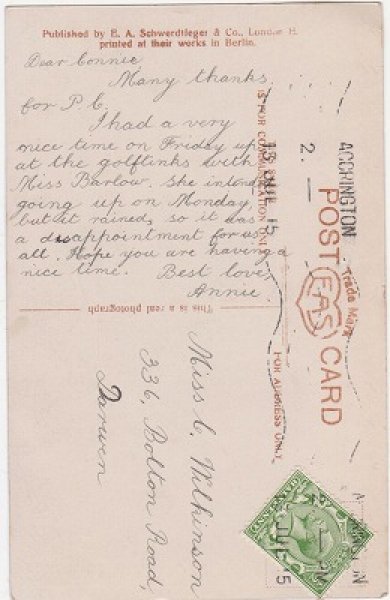 Published by E. A. Schwerdtfeger & Co., London E.
printed at their works in Berlin.
Dear Connie
Many thanks
for P. C.
I had a very
nice time on Friday up
at the golf links with
Miss Barlow. She intend
going up on Monday,
but it rained, so it was
a disappointment for us
all. Hope you are having a
nice time. Best love,
Annie.
This is a real photograph
IS FOR COMMUNICATION ONLY
ACCRINGTON
2. —
13 JUL 15
POST CARD
EAS
Trade Mark
FOR ADDRESS ONLY
Miss C. Wilkinson
336, Bolton Road,
Darwen
JUL 15